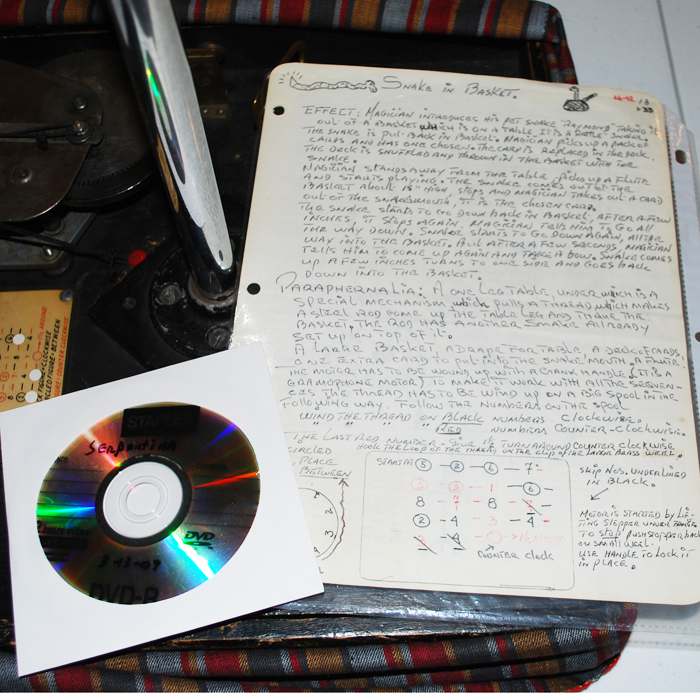 SNAKE IN BASKET.
18
EFFECT: MAGICIAN INTRODUCES HIS PET SNAKE "RAYMOND" TAKING IT
OUT OF A BASKET WHICH IS ON A TABLE. IT IS A
THE SNAKE IS PUT BACK IN BASKET. MAGICIAN PICKS UP A PACK OF
CARDS AND HAS ONE CHOSEN. THE CARD IS REPLACED IN THE PACK.
THE DECK IS SHUFFLED AND THROWN IN THE BASKET WITH THE
SNAKE.
MAGICIAN STANDS AWAY FROM THE TABLE, PICKS UP A FLUTE
AND STARTS PLAYING & THE SNAKE COMES OUT OF THE
BASKET ABOUT 18" HIGH, STOPS AND MAGICIAN TAKES OUT A CARD
OUT OF THE SNAKES MOUTH, IT IS THE CHOSEN CARD.
THE SNAKE STARTS TO GO DOWN BACK IN BASKET, AFTER A FEW
INCHES, IT STOPS AGAIN. MAGICIAN TELLS HIM TO GO ALL
THE WAY DOWN. SNAKE STARTS TO GO DOWN AGAIN, ALL THE
WAY INTO THE BASKET. BUT AFTER A FEW SECONDS, MAGICIAN
TELLS HIM TO COME UP AGAIN AND TAKE A BOW. SNAKE COMES
UP A FEW INCHES TURNS TO ONE SIDE AND GOES BACK
DOWN INTO THE BASKET.
PARAPHERNALIA: A ONE LEG TABLE, UNDER WHICH IS A
SPECIAL MECHANISM WHICH PULLS A THREAD WHICH MAKES
A STEEL ROD COME UP THE TABLE LEG AND THRU THE
BASKET. THE ROD HAS ANOTHER SNAKE ALLREADY
SET UP ON TOP OF IT.
A LARGE BASKET, A DRAPE FOR TABLE, A DECK OF CARDS,
ONE EXTRA CARD TO PUT INTO THE SNAKE MOUTH, A FLUTE.
THE MOTOR HAS TO BE WOUND UP WITH A CRANK HANDLE (IT IS A
GRAMOPHONE MOTOR) TO MAKE IT WORK WITH ALL THE SEQUEN-
CES THE THREAD HAS TO BE WIND UP ON A BIG SPOOL IN THE
FOLLOWING WAY. FOLLOW THE NUMBERS ON THE SPOOL
WIND THE THREAD ON BLACK NUMBERS CLOCKWISE.
" " " " RED NUMBERS COUNTER-CLOCKWISE.
THE LAST RED NUMBER - GIVE IT TURN AROUND COUNTER CLOCKWISE
HOOK THE LOOP OF THE THREAD ON THE CLIP OF THE LARGE BRASS WEEL.
CIRCLED
PLACE
BETWEEN
START AT 5 - 2 - 6 - 7 -
8 - 7 - 8 -
2 - 4 - 3 - 4 -
COUNTER CLOCK
SKIP NOS. UNDERLINED
IN BLACK.
MOTOR IS STARTED BY LIF-
TING STOPPER UNDER
TO STOP PUSH STOPPER BACK
ON SMALL WEEL.
USE HANDLE TO LOCK IT
IN PLACE.
STAPLES
Serpentini
DVD
3-13-09
DVD-R